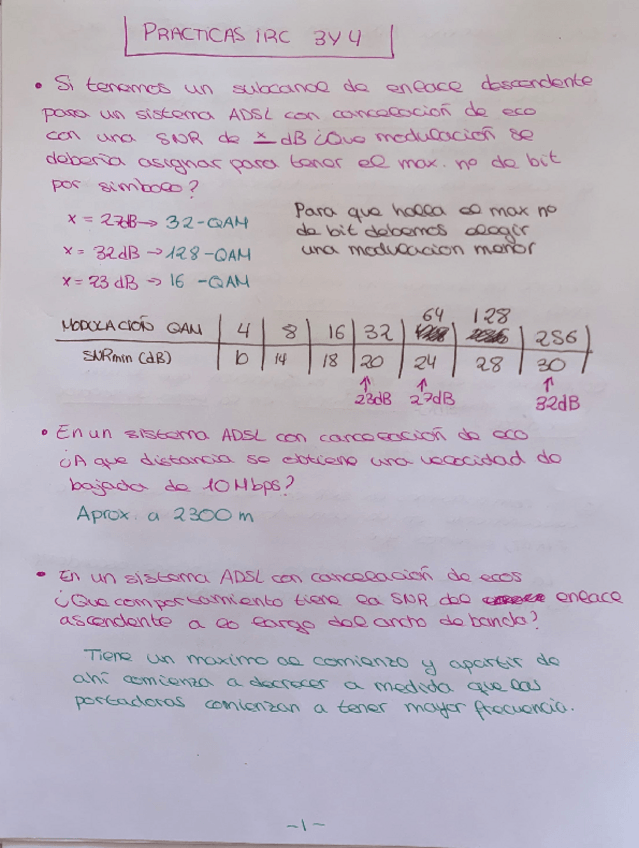 PRACTICAS IRC 3Y4
• Si tenemos un subcanal de enlace descendente
para un sistema ADSL con cancelación de eco
con una SNR de x dB ¿Que modulación se
debería asignar para tener el max. no de bit
por simbolo?
x = 27dB → 32-QAM
x = 32dB → 128-QAM
x = 23 dB → 16 -QAM
Para que halla el max no
de bit debemos elegir
una modulacion menor
64 128
MODULACIÓN QAM | 4 | 8 | 16 | 32 | | | 286
SNRmin (dB) | b | 14 | 18 | 20 | 24 | 28 | 30
↑ 23dB ↑ 27dB ↑ 32dB
• En un sistema ADSL con cancelación de eco
¿A que distancia se obtiene una velocidad de
bajada de 10Mbps?
Aprox. a 2300 m
• En un sistema ADSL con cancelación de ecos
¿Que comportamiento tiene la SNR del enlace
ascendente a lo largo del ancho de banda?
Tiene un maximo al comienzo y apartir de
ahí comienza a decrecer a medida que las
portadoras comienzan a tener mayor frecuencia.
-1-